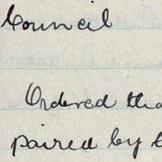 Council
Ordered tha
paired by t